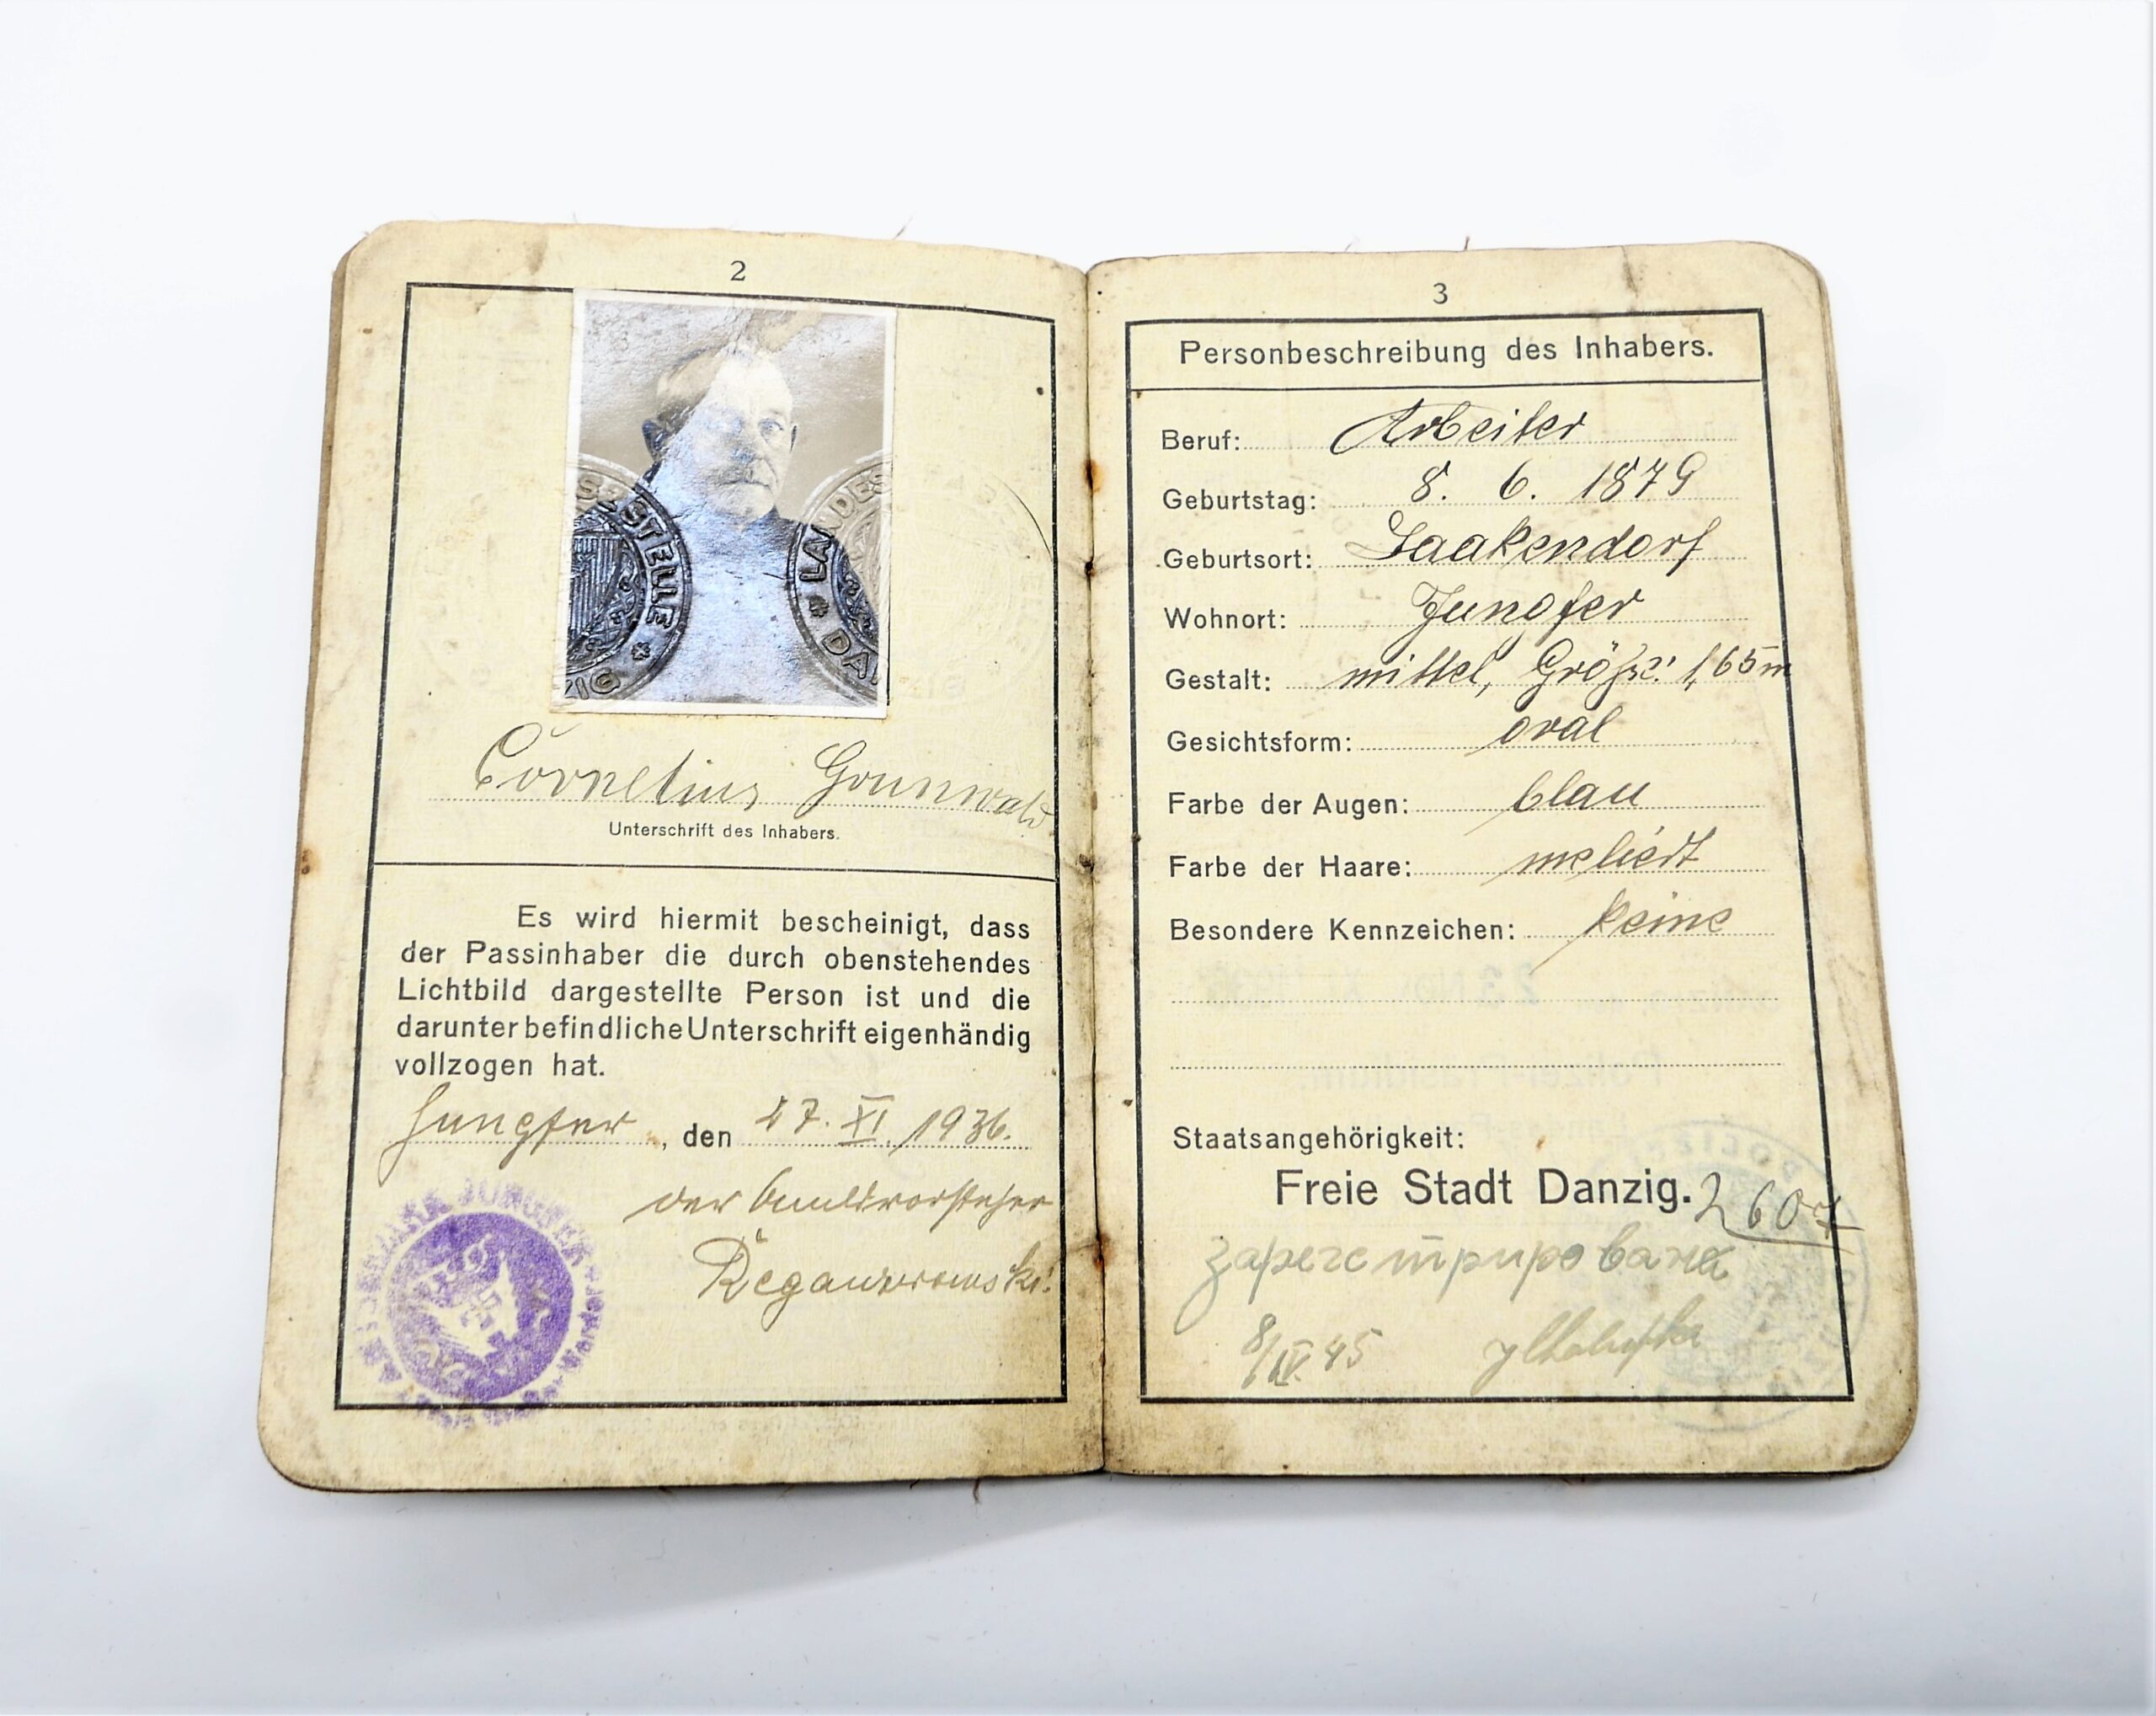 2
STELLE
ZIG
LANDES
DA
Cornelius Grunwald
Unterschrift des Inhabers.
Es wird hiermit bescheinigt, dass
der Passinhaber die durch obenstehendes
Lichtbild dargestellte Person ist und die
darunter befindliche Unterschrift eigenhändig
vollzogen hat.
Jungfer, den 27. XI. 1936.
der
JUNGFER
3
Personbeschreibung des Inhabers.
Beruf: Arbeiter
Geburtstag: 8. 6. 1879
Geburtsort: Laakendorf
Wohnort: Jungfer
Gestalt: mittel, Größe: 1,65m
Gesichtsform: oval
Farbe der Augen: blau
Farbe der Haare: meliert
Besondere Kennzeichen: keine
Staatsangehörigkeit:
Freie Stadt Danzig.
зарегистрирована
8/IV.45